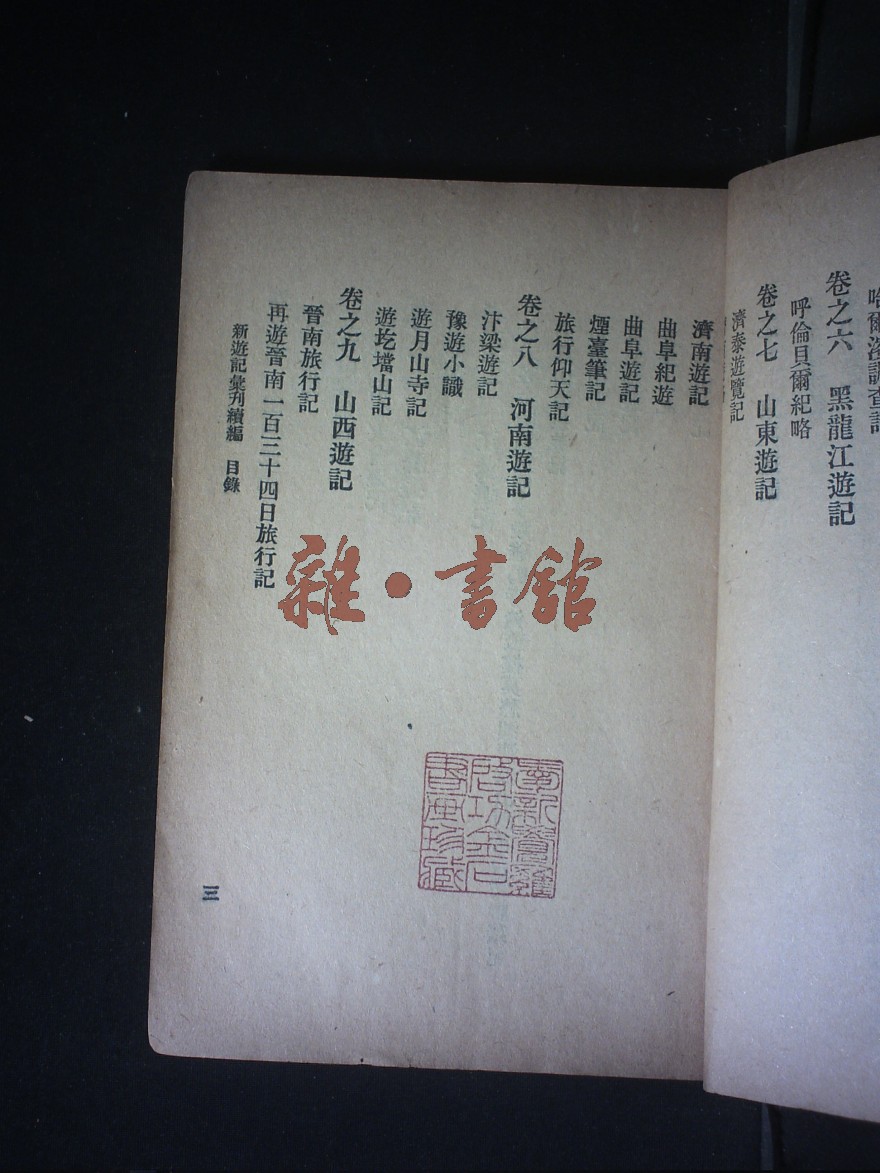 卷之六　黑龍江遊記
呼倫貝爾紀略
卷之七　山東遊記
濟泰遊覽記
濟南遊記
曲阜紀遊
曲阜遊記
煙臺筆記
旅行仰天記
卷之八　河南遊記
汴梁遊記
豫遊小識
遊月山寺記
遊圪壋山記
卷之九　山西遊記
晉南旅行記
再遊晉南一百三十四日旅行記
新遊記彙刊續編　目錄
三
雜·書館